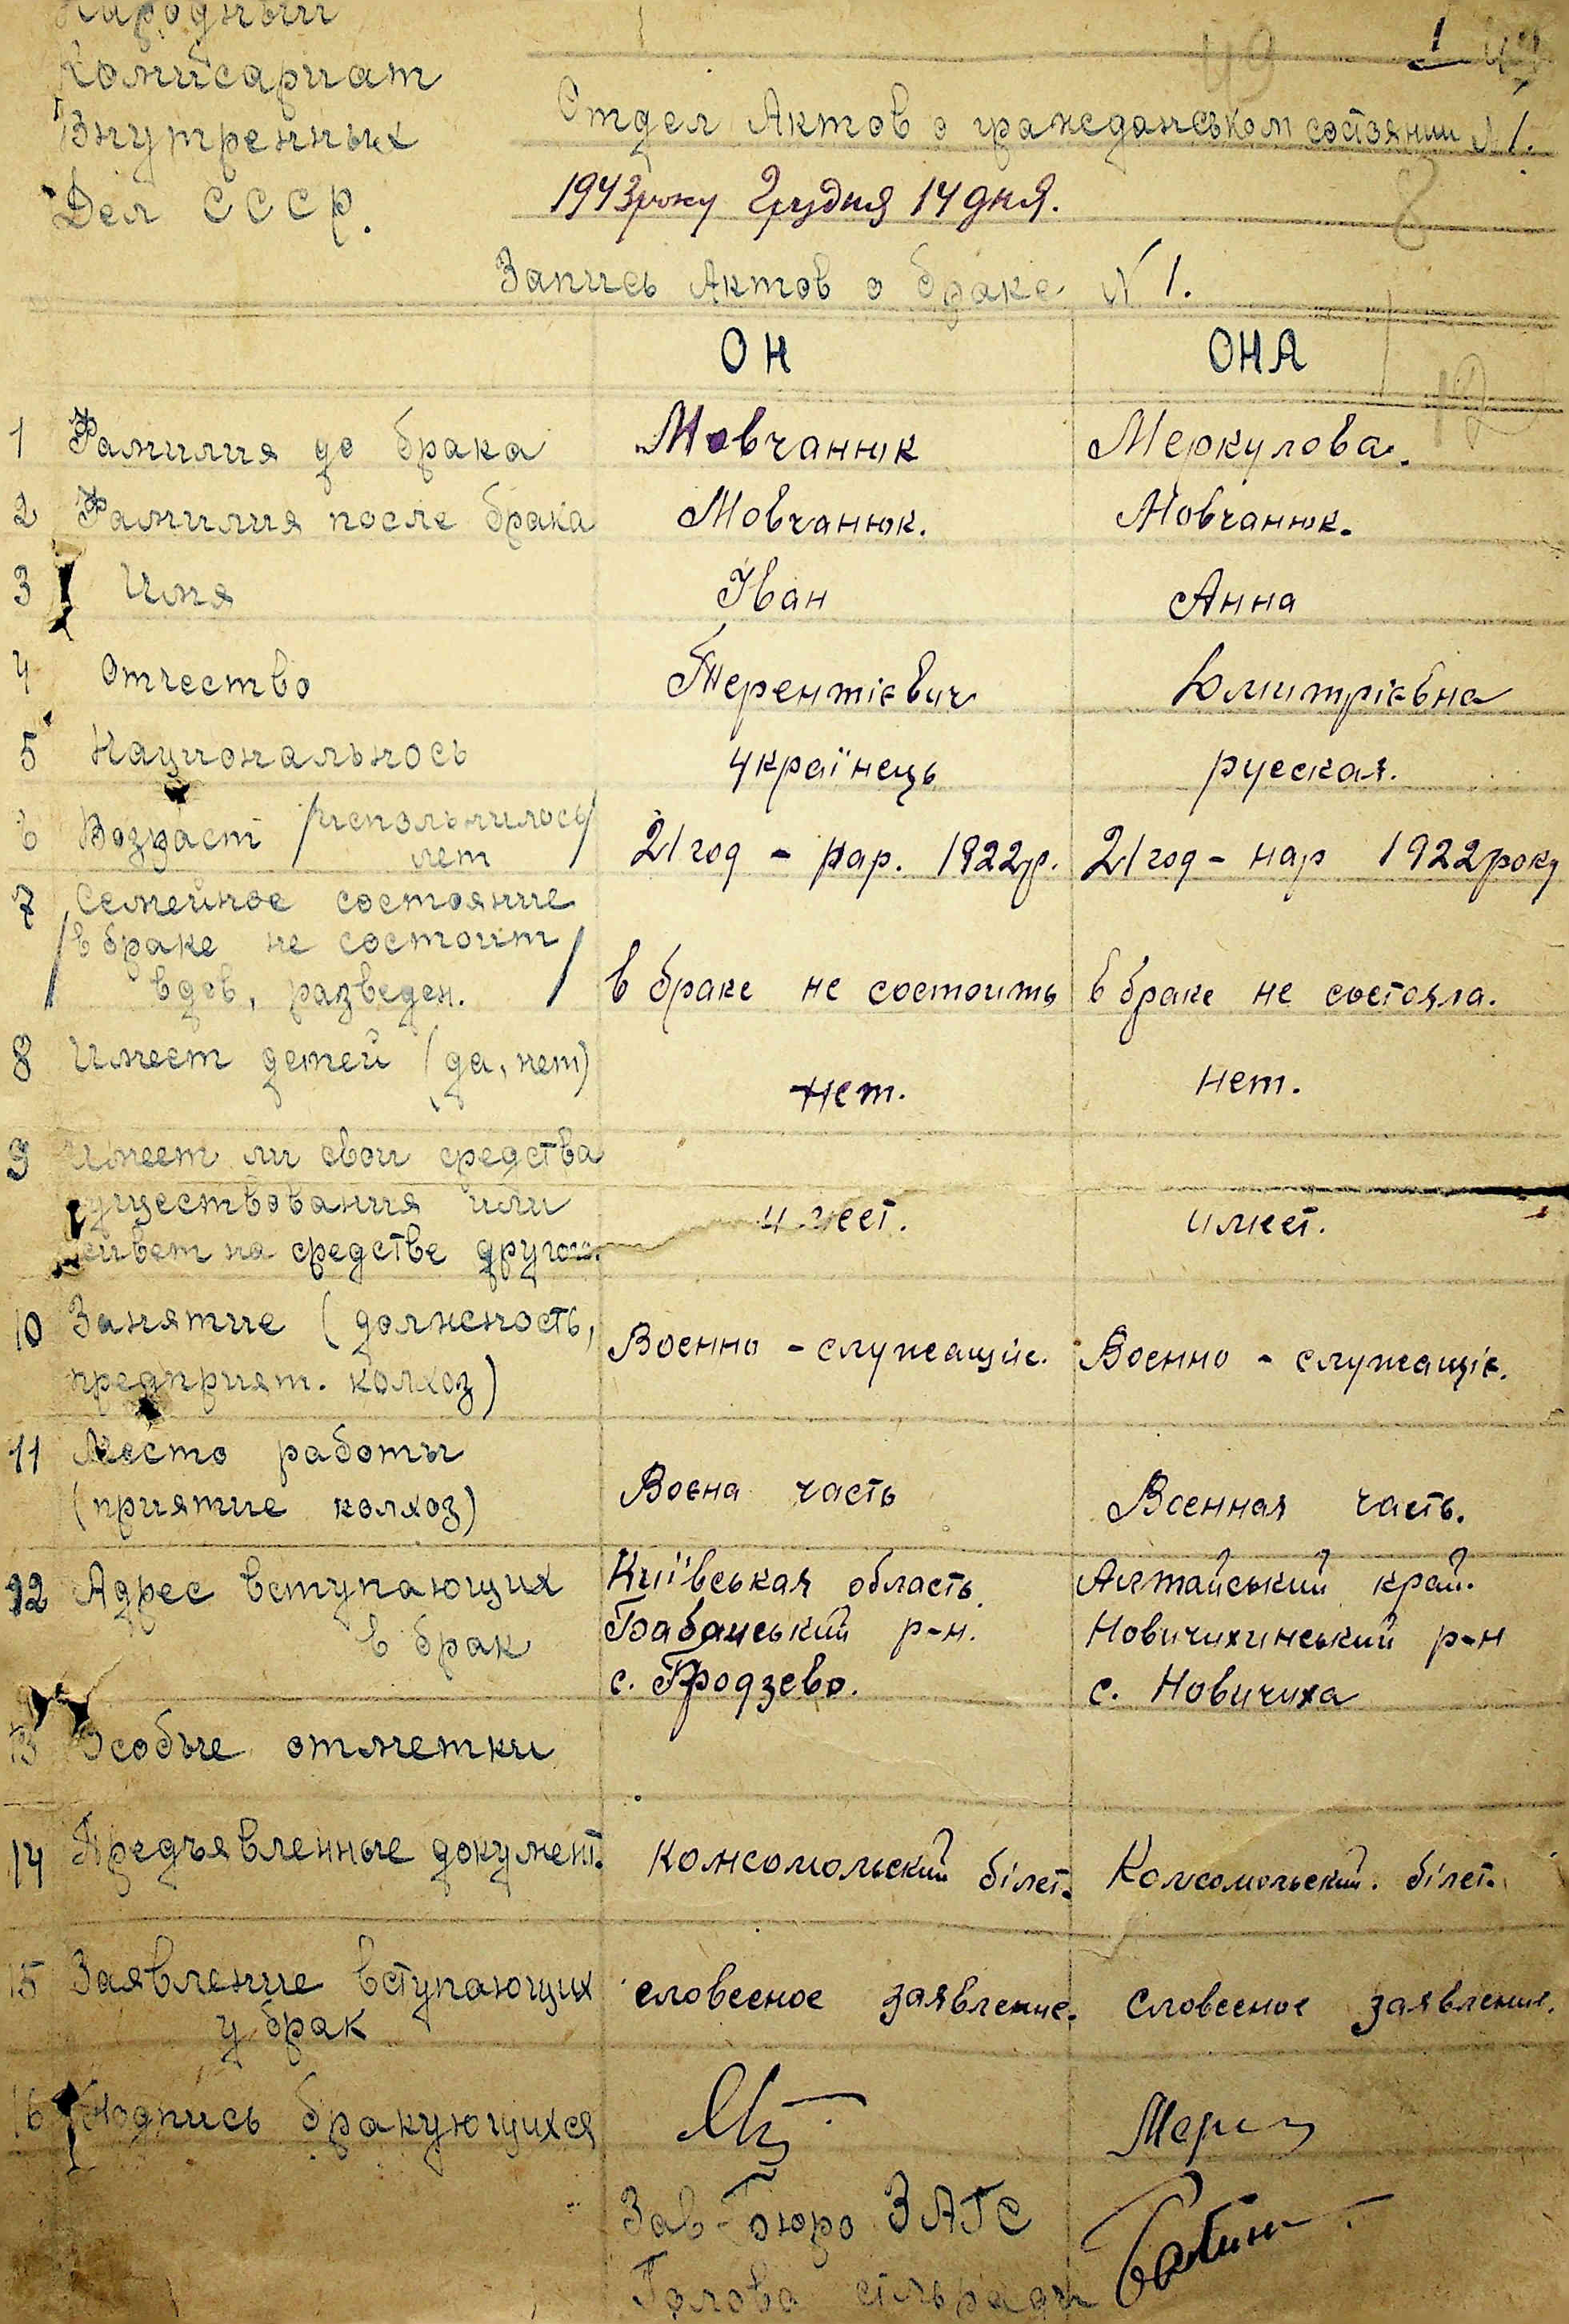 Народный
Комисариат
Внутренных
Дел СССР.
1
Отдел Актов о гражеданськом состоянии №1.
1943 року Грудня 14 дня.
Запись Актов о браке N 1.
ОН ОНА
1 Фамилия до брака Мовчанюк Меркулова.
2 Фамилия после брака Мовчанюк. Мовчанюк.
3 Имя Іван Анна
4 Отчество Терентієвич Юмитрієвна
5 Национальнось Українець русская.
6 Возраст /исполнилось лет/ 21 год - рар. 1922 р. 21 год - нар 1922 року
7 Семейное состояние
/в браке не состоит
вдов, разведен./ в браке не состоить в браке не состояла.
8 Имеет детей (да, нет) нет. нет.
9 Имеет ли свои средства
существования или имеет. имеет.
живет на средстве другого.
10 Занятие (должность,
предприят. колхоз) Военно - служащіє. Военно - служащіє.
11 Место работы
(приятие колхоз) Воєна часть Военная часть.
12 Адрес вступающих Київськая область Алтайський край.
в брак Бабанський р-н. Новичихинський р-н
с. Гродзево. с. Новичиха
13 Особые отметки
14 Предъявленные документ. Комсомольский білет. Комсомольский. білет.
15 Заявление вступающих словесное заявление. словесное заявление.
у брак
16 Подпись бракующихся
Зав-Бюро ЗАГС
Голова сільради